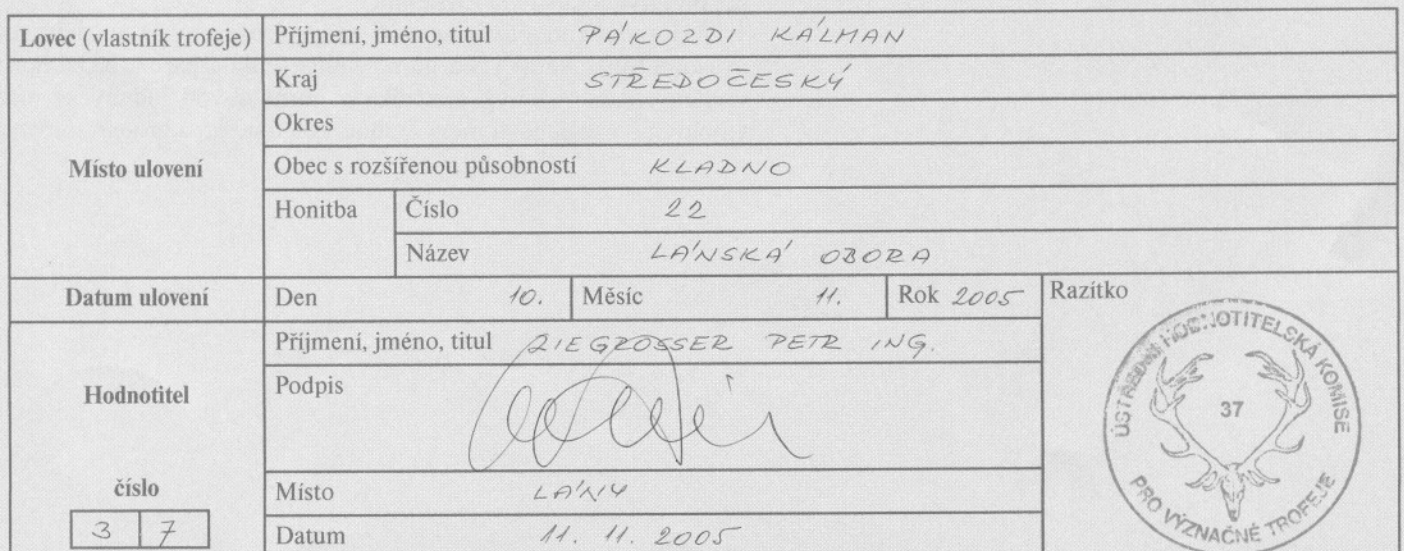 Lovec (vlastník trofeje) Příjmení, jméno, titul PÁKOZDI KÁLMAN
Místo ulovení
Kraj STŘEDOČESKÝ
Okres
Obec s rozšířenou působností KLADNO
Honitba Číslo 22
Název LÁNSKÁ OBORA
Datum ulovení Den 10. Měsíc 11. Rok 2005 Razítko
Hodnotitel
Příjmení, jméno, titul ZIEGROSSER PETR ING.
Podpis
číslo
3 7
Místo LÁNY
Datum 11. 11. 2005
ÚSTŘEDNÍ HODNOTITELSKÁ KOMISE
37
PRO VÝZNAČNÉ TROFEJE